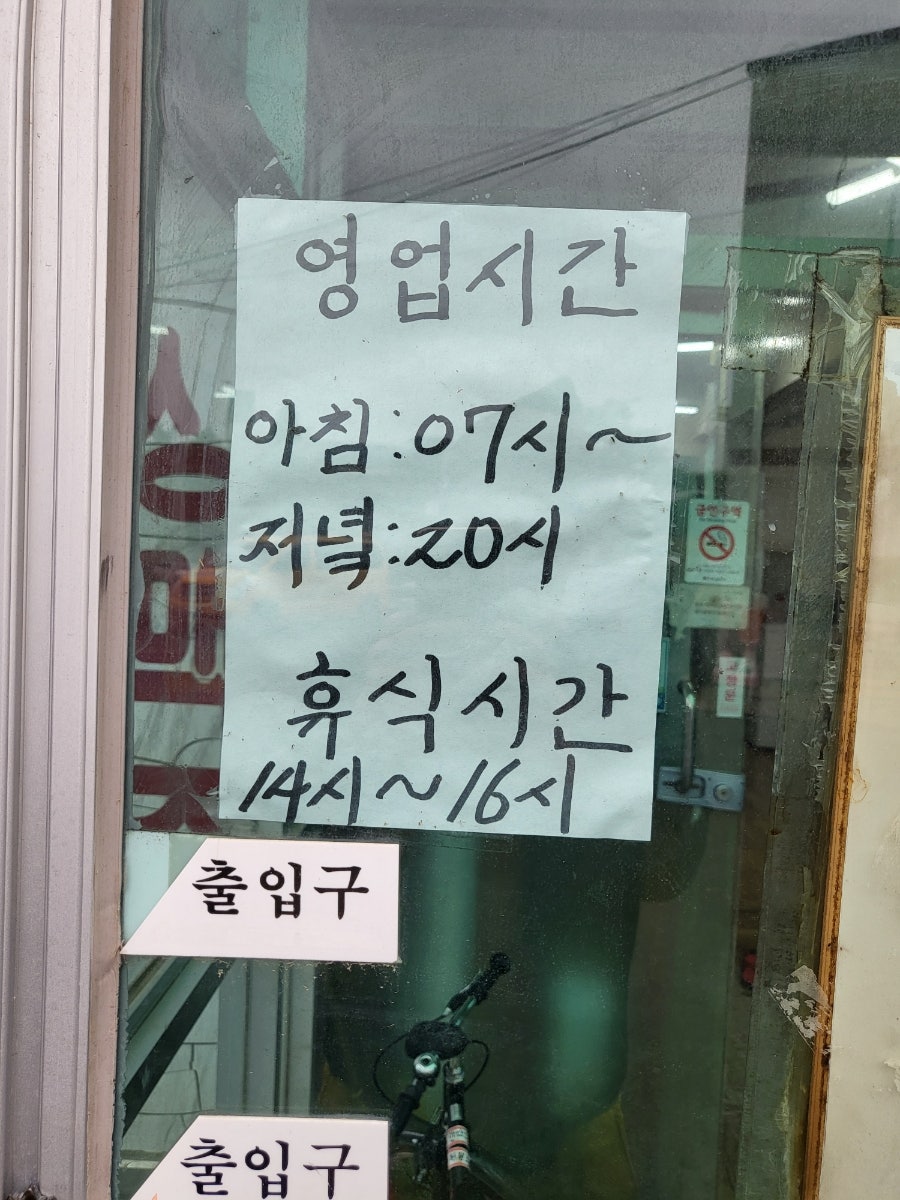 영업시간
아침:07시~
저녁:20시
휴식시간
14시~16시
금연구역
출입구
출입구